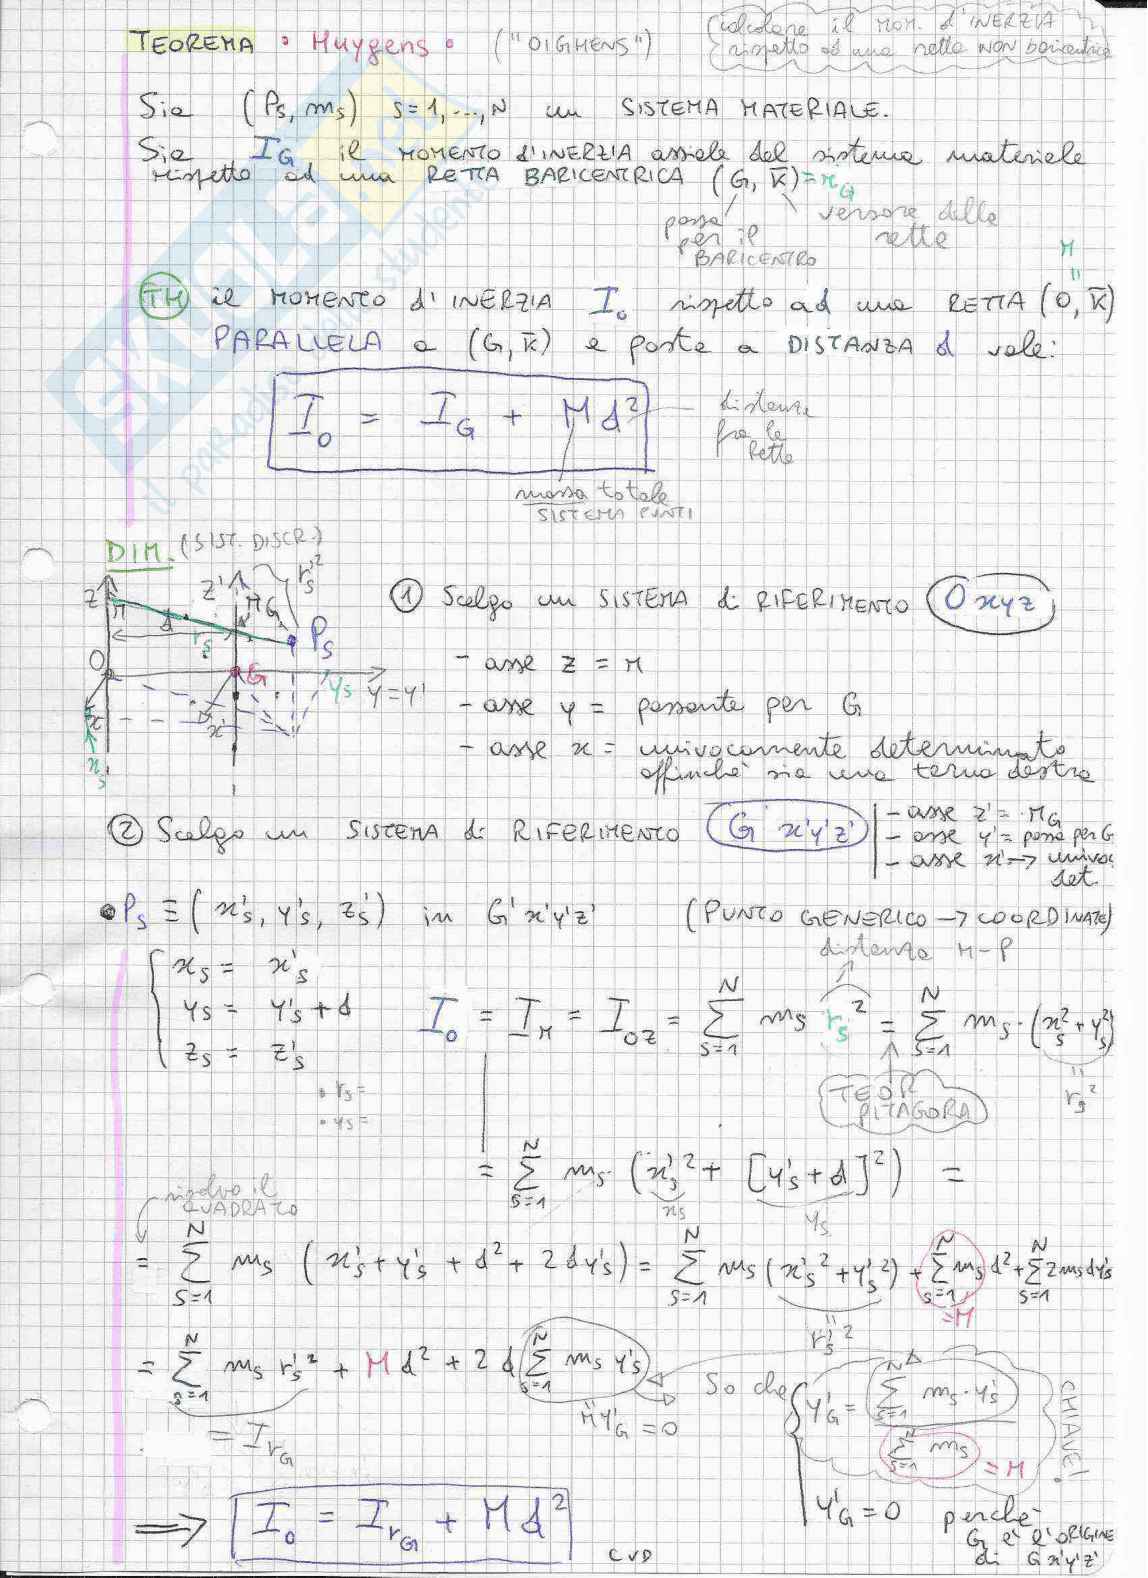 TEOREMA • Huygens • ("OIGHENS")
(calcolare il MOM. d'INERZIA
rispetto ad una retta NON baricentrica
Sia (Ps, ms) s=1,...,N un SISTEMA MATERIALE.
Sia I_G il MOMENTO d'INERZIA assiale del sistema materiale
rispetto ad una RETTA BARICENTRICA (G, k̄) = r_G
passa per il BARICENTRO
versore della retta
TH il MOMENTO d'INERZIA I_o rispetto ad una RETTA (O, k̄)
r
=
PARALLELA a (G, k̄) e posta a DISTANZA d vale:
I_o = I_G + M d²
distanza fra le rette
massa totale
SISTEMA PUNTI
DIM. (SIST. DISCR.)
z r d r_s z' r_G r'_s² Ps
O G y_s y=y'
x x_s x'
① Scelgo un SISTEMA di RIFERIMENTO Oxyz
- asse z = r
- asse y = passante per G
- asse x = univocamente determinato
affinché sia una terna destra
② Scelgo un SISTEMA di RIFERIMENTO G x'y'z'
- asse z' = r_G
- asse y' = passa per G
- asse x' → univoc
det.
• Ps ≡ (x's, y's, z's) in G'x'y'z' (PUNTO GENERICO → COORDINATE)
distanza r-P
xs = x's
ys = y's + d
zs = z's
I_o = I_r = I_oz = Σ_{s=1}^{N} ms rs² = Σ_{s=1}^{N} ms · (xs² + ys²)
= rs²
TEOR PITAGORA
• rs =
• ys =
= Σ_{s=1}^{N} ms · (x's² + [y's + d]²) =
xs
ys
risolvo il
QUADRATO
= Σ_{s=1}^{N} ms (x's + y's + d² + 2dy's) = Σ_{s=1}^{N} ms (x's² + y's²) + Σ_{s=1}^{N} ms d² + Σ_{s=1}^{N} 2 ms dy's
= M
= r's²
= Σ_{s=1}^{N} ms r's² + M d² + 2 d Σ_{s=1}^{N} ms y's
= I_rG
M y'_G = 0
So che
y'_G = Σ_{s=1}^{N} ms · y's / Σ_{s=1}^{N} ms = M
CHIAVE!
y'_G = 0 perché
G è l'ORIGINE
di G x'y'z'
⇒ I_o = I_rG + M d²
CVD
SKUOLA.net
il paradiso dello studente